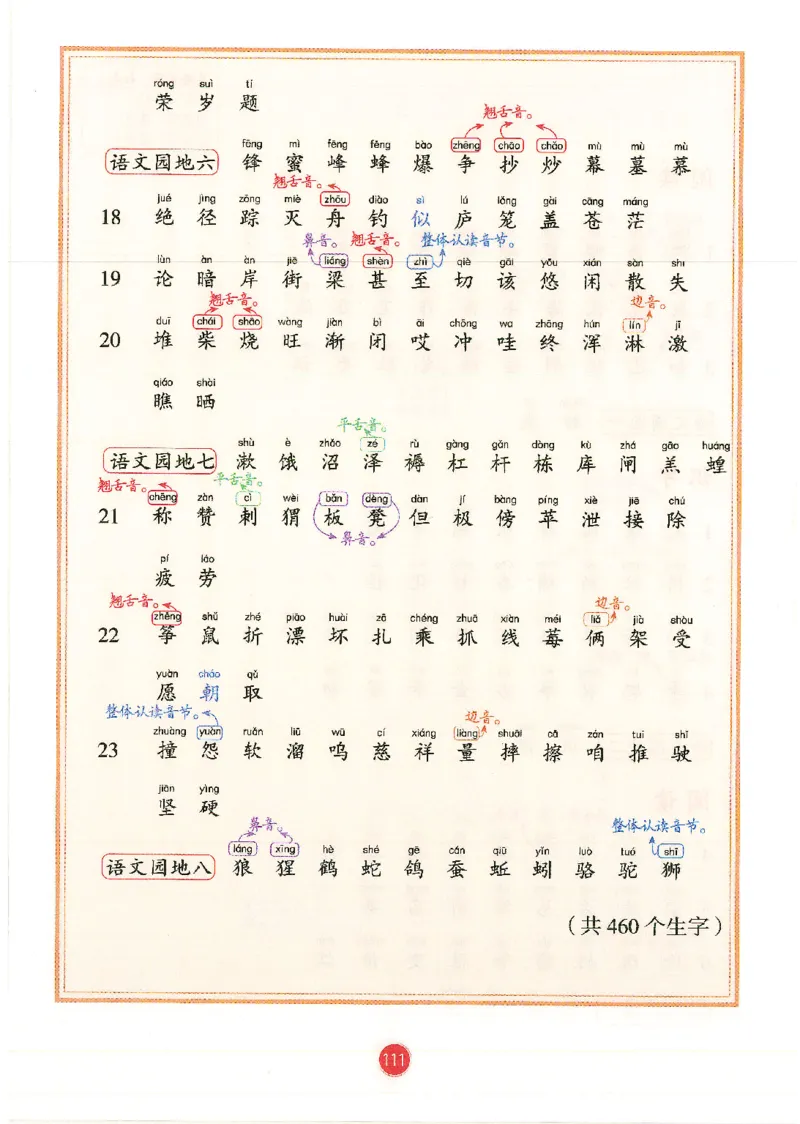 róng suì tí
荣 岁 题
翘舌音。
fēng mì fēng fēng bào zhēng chāo chǎo mù mù mù
语文园地六 锋 蜜 峰 蜂 爆 争 抄 炒 幕 墓 慕
翘舌音。
jué jìng zōng miè zhōu diào sì lú lóng gài cāng máng
18 绝 径 踪 灭 舟 钓 似 庐 笼 盖 苍 茫
鼻音。 翘舌音。 整体认读音节。
lùn àn àn jiē liáng shèn zhì qiè gāi yōu xián sàn shī
19 论 暗 岸 街 梁 甚 至 切 该 悠 闲 散 失
翘舌音。 边音。
duī chái shāo wàng jiàn bì āi chōng wa zhōng hún lín jī
20 堆 柴 烧 旺 渐 闭 哎 冲 哇 终 浑 淋 激
qiáo shài
瞧 晒
平舌音。
shù è zhǎo zé rù gàng gǎn dòng kù zhá gāo huáng
语文园地七 漱 饿 沼 泽 褥 杠 杆 栋 库 闸 羔 蝗
翘舌音。 平舌音。
chēng zàn cì wèi bǎn dèng dàn jí bàng píng xiè jiē chú
21 称 赞 刺 猬 板 凳 但 极 傍 苹 泄 接 除
鼻音。
pí láo
疲 劳
翘舌音。 边音。
zhēng shǔ zhé piāo huài zā chéng zhuā xiàn méi liǎ jià shòu
22 筝 鼠 折 漂 坏 扎 乘 抓 线 莓 俩 架 受
yuàn cháo qǔ
愿 朝 取
整体认读音节。 边音。
zhuàng yuàn ruǎn liū wū cí xiáng liàng shuāi cā zán tuī shǐ
23 撞 怨 软 溜 呜 慈 祥 量 摔 擦 咱 推 驶
jiān yìng
坚 硬
鼻音。 整体认读音节。
láng xīng hè shé gē cán qiū yǐn luò tuó shī
语文园地八 狼 猩 鹤 蛇 鸽 蚕 蚯 蚓 骆 驼 狮
（共 460 个生字）
111